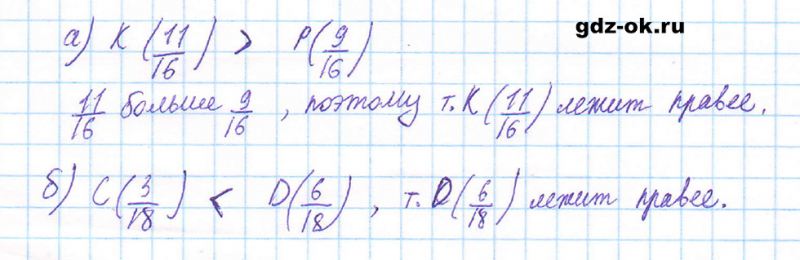 gdz-ok.ru
а) K (11/16) > P(9/16)
11/16 больше 9/16 , поэтому т. K (11/16) лежит правее.
б) C(3/18) < D(6/18) , т. D(6/18) лежит правее.